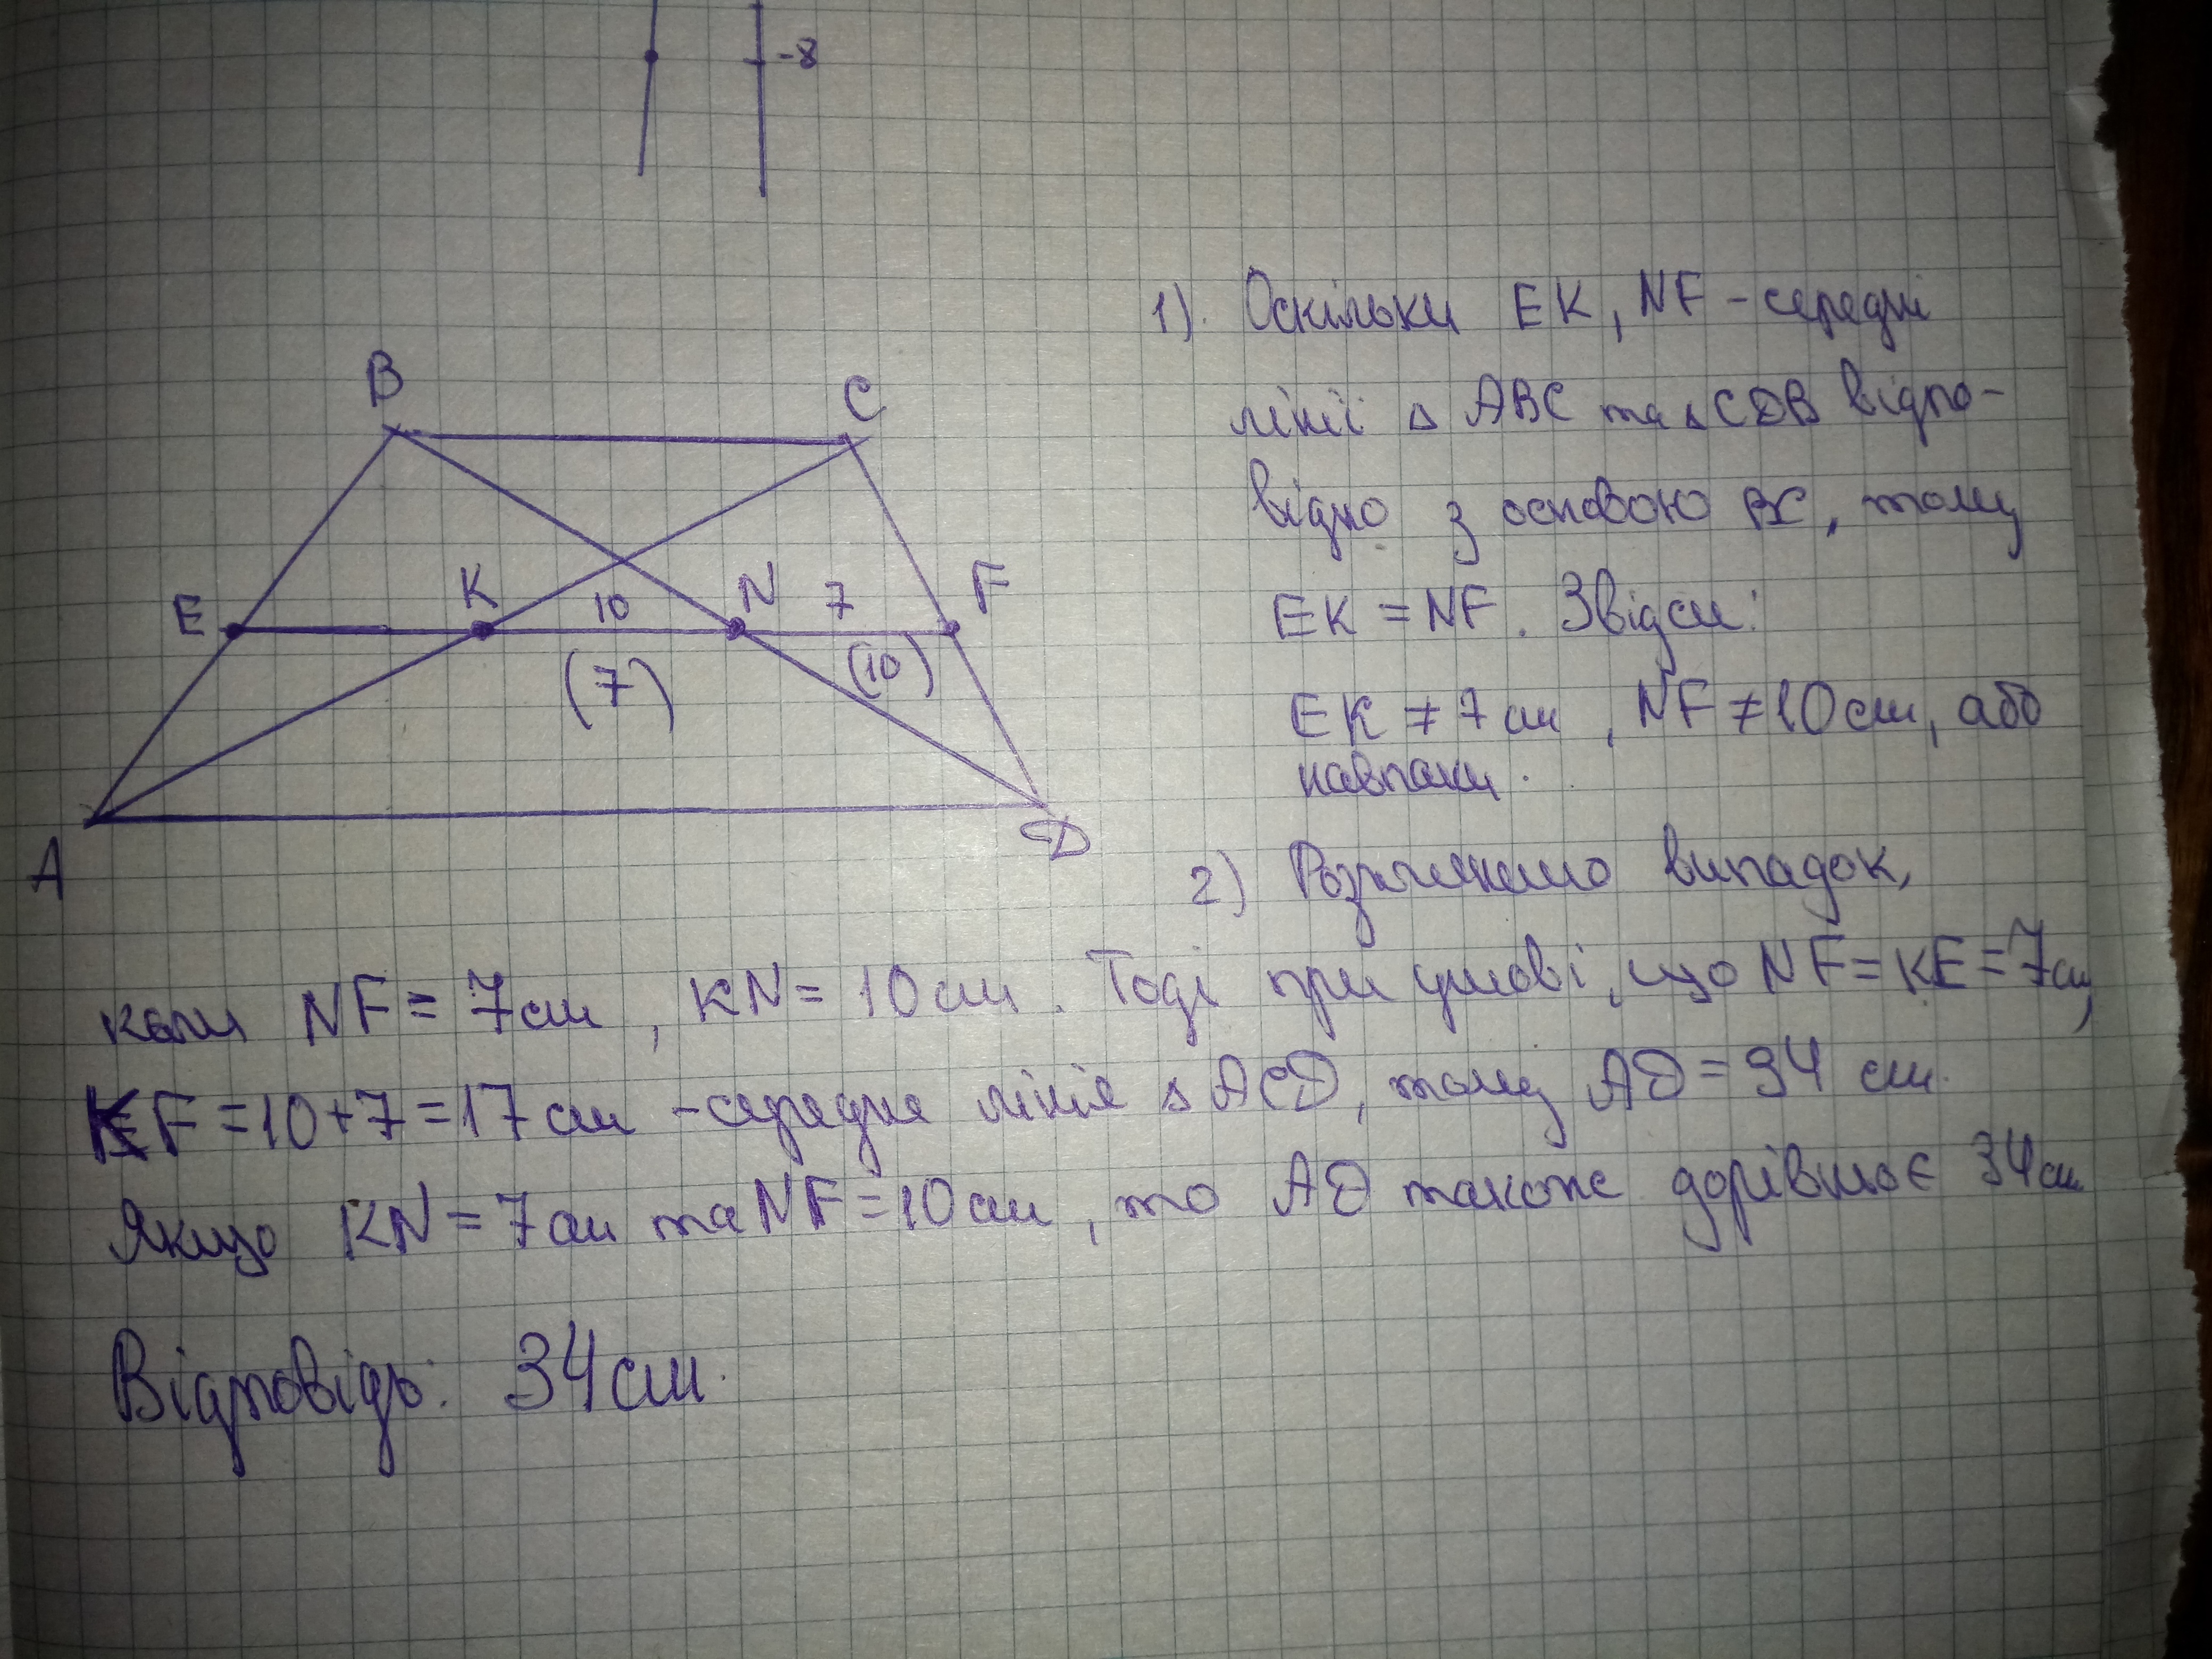 -8
1). Оскільки EK, NF - середні
лінії △ ABC та △ CDB відпо-
відно з основою BC, тому
EK = NF. Звідси:
EK ≠ 7 см, NF ≠ 10 см, або
навпаки.
B
C
E
K
10
N
7
F
(7)
(10)
A
D
2) Розглянемо випадок,
коли NF = 7 см, KN = 10 см. Тоді при умові, що NF = KE = 7 см,
KF = 10 + 7 = 17 см - середня лінія △ ACD, тому AD = 34 см.
Якщо KN = 7 см та NF = 10 см, то AD також дорівнює 34 см
Відповідь: 34 см.